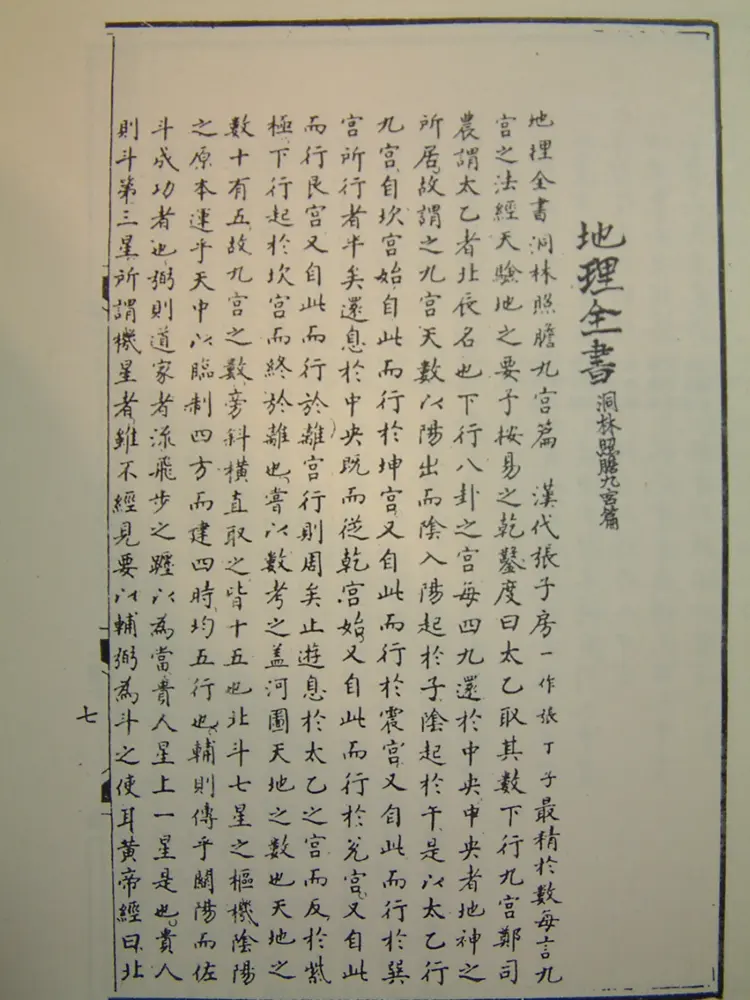 地理全書洞林照膽九宮篇
地理全書洞林照膽九宮篇 漢代張子房一作張丁子最精於數每言九
宮之法經天驗地之要予按易之乾鑿度曰太乙取其數下行九宮鄭司
農謂太乙者北辰名也下行八卦之宮每四九還於中央中央者地神之
所居故謂之九宮天數以陽出而陰入陽起於子陰起於午是以太乙行
九宮自坎宮始自此而行於坤宮又自此而行於震宮又自此而行於巽
宮所行者半矣還息於中央既而從乾宮始又自此而行於兌宮又自此
而行艮宮又自此而行於離宮行則周矣止遊息於太乙之宮而反於紫
極下行起於坎宮而終於離也嘗以數考之盖河圖天地之數也天地之
數十有五故九宮之數旁斜橫直取之皆十五也北斗七星之樞機陰陽
之原本運乎天中以臨制四方而建四時均五行也輔則傳乎闓陽而佐
斗成功者也弼則道家者流飛步之躔以為當貴人星上一星是也貴人
則斗第三星所謂機星者雖不經見要以輔弼為斗之使耳黃帝經曰北
七